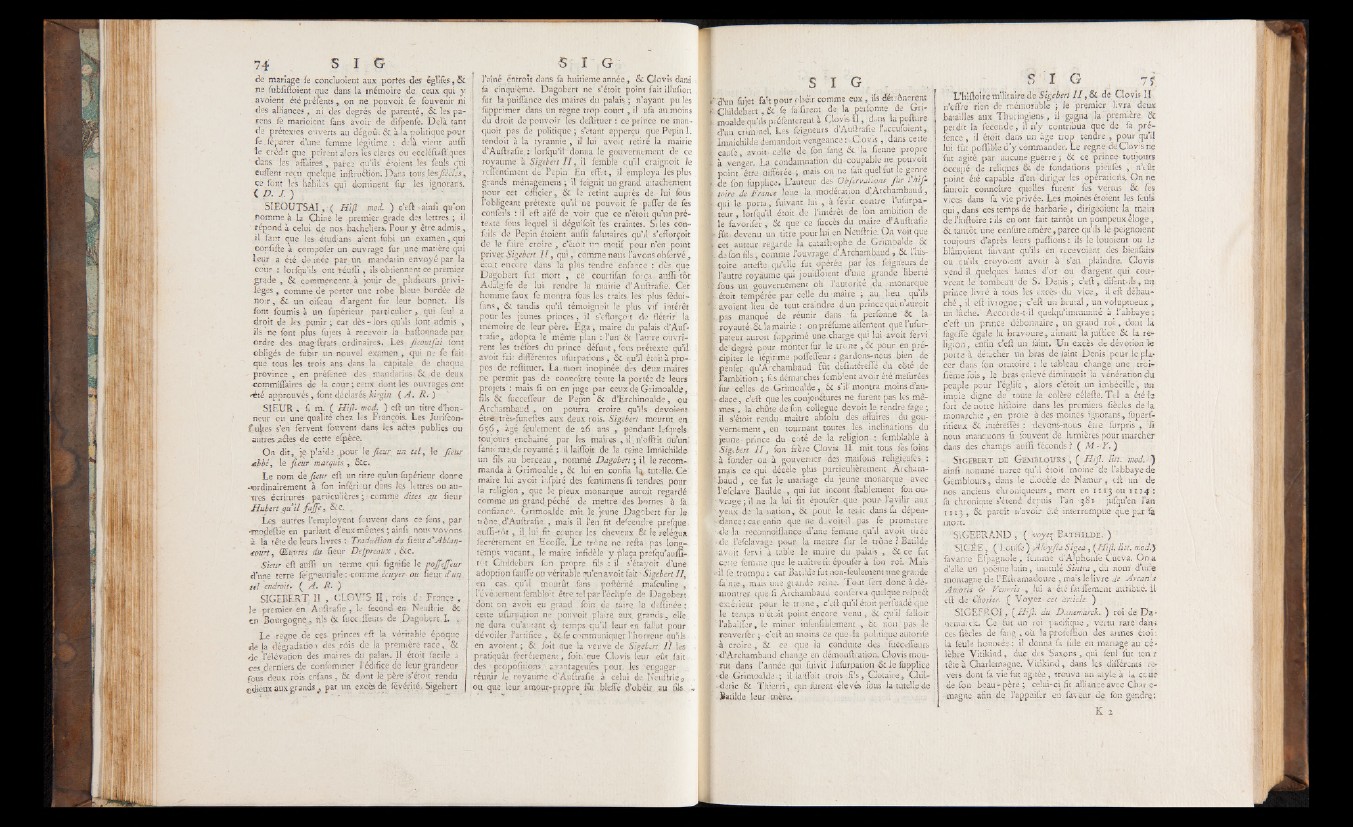 74 S I G
de mariage se concluoient aux portes des églises, &
ne subsistoient que dans la mémoire de ceux qui y
avoient été présens, on ne pouvoit se souvenir ni
des alliances, ni des degrés de parenté, & les pa-
rens se marioient sans avoir de dispense. Delà tant
de prétextes ouverts au dégoût & à la politique pour
se séparer d'une femme légitime : delà vient aussi
le crédit que prirent alors les clercs ou ecclésiastiques
dans les affaires, parce qu'ils étoient les seuls qui
eussent reçu quelque instruction. Dans tous les siècles,
ce sont les habiles qui dominent sur les ignorans.
( D. J. )
SIEOUTSAI, ( Hist. mod. ) c'est ainsi qu'on
nomme à la Chine le premier grade des lettres ; il
répond à celui de nos bacheliers. Pour y être admis,
il faut que les étudians aient subi un examen, qui
consiste à composer un ouvrage sur une matière qui
leur a été donnée par un mandarin envoyé par la
cour : lorsqu'ils ont réussi, ils obtiennent ce premier
grade, & commencent à jouir de plusieurs privi-
lèges, comme de porter une robe bleue bordée de
noir, & un oiseau d'argent sur leur bonnet. Ils
sont soumis à un supérieur particulier, qui seul a
droit de les punir ; car dès-lors qu'ils sont admis,
ils ne sont plus sujets à recevoir la bastonnade par
ordre des magistrats ordinaires. Les sieoutsai sont
obligés de subir un nouvel examen, qui ne se fait
que tous les trois ans dans la capitale de chaque
province, en présence des mandarins & de deux
commissaires de la cour ; ceux dont les ouvrages ont
été approuvés, sont déclarés kirgin. ( A. R. )
SIEUR, s. m. ( Hist. mod. ) est un titre d'hon-
neur ou une qualité chez les François. Les Juriscon-
sultes s'en servent souvent dans les actes publics ou
autres actes de cette espèce.
On dit, je plaide pour le sieur un tel, le sieur
abbé, le sieur marquis, &c.
Le nom de sieur est un titre qu'un supérieur donne
ordinairement à son inférieur dans les lettres ou au-
tres écritures particulières ; comme dites au sieur
Hubert qu'il fasse, &c.
Les autres l'emploient souvent dans ce sens, par
modestie en parlant d'eux mêmes ; ainsi nous voyons
à la tête de leurs livres : Traduction du sieur d'Ablan-
court, Œuvres du sieur Despreaux, &c.
Sieur est aussi un terme qui signifie le possesseur
d'une terre seigneuriale : comme écuyer ou sieur d'un
tel endroit. ( A. R. )
SIGEBERT II, CLOVIS II, rois de France,
le premier en Austrasie, le second en Neustrie &
en Bourgogne, fils & successeurs de Dagobert I.
Le regne de ces princes est la véritable époque
de la dégradation des rois de la première race, &
de l'élévation des maires du palais. Il étoit facile à
ces derniers de consommer l'édifice de leur grandeur
sous deux rois enfans, & dont le père s'étoit rendu
odieux aux grands, par un excès de sévérité. Sigebert
S I G
l'aîné entroit dans sa huitieme année, & Clovis dans
sa cinquième. Dagobert ne s'étoit point fait illusion
sur la puissance des maires du palais ; n'ayant pu les
supprimer dans un regne trop court, il usa au moins
du droit de pouvoir les destituer : ce prince ne man-
quoit pas de politique ; s'étant apperçu que Pepin I.
tendoit à la tyrannie, il lui avoit retiré la mairie
d'Austrasie : lorsqu'il donna le gouvernement de ce
royaume à Sigebert II, il semble qu'il craignoit le
ressentiment de Pepin. En effet, il employa les plus
grands ménagemens ; il feignit un grand attachement
pour cet officier, & le retint auprès de lui sous
l'obligeant prétexte qu'il ne pouvoit se passer de ses
conseils : il est aisé de voir que ce n'étoit qu'un pré-
texte sous lequel il déguisoit ses craintes. Si les con-
seils de Pepin étoient aussi salutaires qu'il s'efforçoit
de le faire croire, c'étoit un motif pour n'en point
priver Sigebert II, qui, comme nous l'avons observé,
étoit encore dans la plus tendre enfance : dès que
Dagobert fut mort, ce courtisan força aussi-tôt
Adalgise de lui rendre la mairie d'Austrasie. Cet
homme faux se montra sous les traits les plus sédui-
sans, & tandis qu'il témoignoit le plus vif intérêt
pour les jeunes princes, il s'efforçoit de flétrir la
mémoire de leur père. Ega, maire du palais d'Aus-
trasie, adopta le même plan : l'un & l'autre ouvri-
rent les trésors du prince défunt, sous prétexte qu'il
avoit fait différentes usurpations, & qu'il étoit à pro-
pos de restituer. La mort inopinée des deux maires
ne permit pas de connoître toute la portée de leurs
projets : mais si on en juge par ceux de Grimoalde,
fils & successeur de Pepin & d'Erchinoalde, ou
Archambaud, on pourra croire qu'ils devoient
être très-funestes aux deux rois. Sigebert mourut en
656, âgé seulement de 26 ans, pendant lesquels
toujours enchaîné par les maires, il n'offrit qu'un
fantôme de royauté : il laissoit de la reine Imnichilde
un fils au berceau, nommé Dagobert ; il le recom-
manda à Grimoalde, & lui en confia la tutelle. Ce
maire lui avoit inspiré des sentimens si tendres pour
la religion, que le pieux monarque auroit regardé
comme un grand péché de mettre des bornes à sa
confiance. Grimoalde mit le jeune Dagobert sur le
trône d'Austrasie, mais il l'en fit descendre presque
aussi-tôt, il lui fit couper les cheveux & le relégua
secrétement en Ecosse. Le trône ne resta pas long-
temps vacant, le maire infidèle y plaça presqu'aussi-
tôt Childebert son propre fils : il s'étayoit d'une
adoption fausse ou véritable qu'en avoit fait Sigebert II,
en cas qu'il mourût sans postérité masculine,
l'évènement sembloit être tel par l'éclipse de Dagobert
dont on avoit eu grand soin de taire la destinée :
cette usurpation ne pouvoit plaire aux grands, elle
ne dura qu'autant de temps qu'il leur en fallut pour
dévoiler l'artifice, & se communiquer l'horreur qu'ils
en avoient ; & soit que la veuve de Sigebert II les
pratiquât secrétement, soit que Clovis leur eût fait
des propositions avantageuses pour les engager à
réunir le royaume d'Austrasie à celui de Neustrie,
ou que leur amour-propre fût blessé d'obéir au fils
S I G
d'un sujet fait pour obéir comme eux, ils détrônerent
Childebert, & se saisirent de la personne de Gri-
moalde qu'ils présenterent à Clovis II, dans la posture
d'un criminel. Les seigneurs d'Austrasie l'accusoient,
Imnichilde demandoit vengeance : Clovis, dans cette
cause, avoit celle de son sang & la sienne propre
à venger. La condamnation du coupable ne pouvoit
point être différée, mais on ne sait quel fut le genre
de son supplice. L'auteur des Observations sur l'his-
toire de France loue la modération d'Archambaud,
qui le porta, suivant lui, à sévir contre l'usurpa-
teur, lorsqu'il étoit de l'intérêt de son ambition de
le favoriser, & que ce succès du maire d'Austrasie
fût devenu un titre pour lui en Neustrie. On voit que
cet auteur regarde la catastrophe de Grimoalde &
de son fils, comme l'ouvrage d'Archambaud, & l'his-
toire atteste qu'elle fut opérée par les seigneurs de
l'autre royaume qui jouissoient d'une grande liberté
sous un gouvernement où l'autorité du monarque
étoit tempérée par celle du maire ; au lieu qu'ils
avoient lieu de tout craindre d'un prince qui n'auroit
pas manqué de réunir dans sa personne & la
royauté & la mairie : on présume aisément que l'usur-
pateur auroit supprimé une charge qui lui avoit servi
de degré pour monter sur le trône, & pour en pré-
cipiter le légitime possesseur : gardons-nous bien de
penser qu'Archambaud fût désintéressé du côté de
l'ambition ; ses démarches semblent avoir été mesurées
sur celles de Grimoalde, & s'il montra moins d'au-
dace, c'est que les conjonctures ne furent pas les mê-
mes, la chûte de son collegue devoit le rendre sage ;
il s'étoit rendu maître absolu des affaires du gou-
vernement, en tournant toutes les inclinations du
jeune prince du côté de la religion : semblable à
Sigebert II, son frère Clovis II mit tous ses soins
à fonder ou à gouverner des maisons religieuses :
mais ce qui décèle plus particulièrement Archam-
baud, ce fut le mariage du jeune monarque avec
l'esclave Batilde, qui sut incont stablement son ou-
vrage ; il ne la lui fit épouser que pour l'avilir aux
yeux de la nation, & pour le tenir dans sa dépen-
dance : car enfin que ne devoit-il pas se promettre
de la reconnoissance d'une femme qu'il avoit tirée
de l'esclavage pour la mettre sur le trône ? Batilde
avoit servi à table le maire du palais, & ce fut
cette femme que le maître fit épouser à son roi. Mais
il se trompa : car Batilde fut non-seulement une grande
sainte, mais une grande reine. Tout sert donc à dé-
montrer que si Archambaud conserva quelque respect
extérieur pour le trône, c'est qu'il étoit persuadé que
le temps n'étoit point encore venu, & qu'il falloit
l'abaisser, le miner insensiblement, & non pas le
renverser ; c'est au moins ce que la politique autorise
à croire, & ce que la conduite des successeurs
d'Archambaud change en démonstration. Clovis mou-
rut dans l'année qui suivit l'usurpation & le supplice
de Grimoalde ; il laissoit trois fils, Clotaire, Chil-
deric & Thierri, qui furent élevés sous la tutelle de
Batilde leur mère.
S I G 75
L'histoire militaire de Sigebert II, & de Clovis II
n'offre rien de mémorable ; le premier livra deux
batailles aux Thuringiens, il gagna la première &
perdit la seconde, il n'y contribua que de sa pré-
sence, il étoit dans un âge trop tendre, pour qu'il
lui fût possible d'y commander. Le regne de Clovis ne
fut agité par aucune guerre ; & ce prince toujours
occupé de reliques & de fondations pieuses, n'eût
point été capable d'en diriger les opérations. On ne
sauroit connoître quelles furent ses vertus & ses
vices dans sa vie privée. Les moines étoient les seuls
qui, dans ces temps de barbarie, dirigeoient la main
de l'histoire : ils en ont fait tantôt un pompeux éloge,
& tantôt une censure amère, parce qu'ils le peignoient
toujours d'après leurs passions : ils le louoient ou le
blâmoient suivant qu'ils en recevoient des bienfaits
ou qu'ils croyoient avoir à s'en plaindre. Clovis
vend-il quelques lames d'or ou d'argent qui cou-
vrent le tombeau de S. Denis, c'est, disent-ils, un
prince livré à tous les excès du vice, il est débau-
ché, il est ivrogne ; c'est un brutal, un voluptueux,
un lâche. Accorde-t-il quelqu'immunité à l'abbaye ;
c'est un prince débonnaire, un grand roi, dont la
sagesse égale la bravoure, aimant la justice & la re-
ligion, enfin c'est un saint. Un excès de dévotion le
porte à détacher un bras de saint Denis pour le pla-
cer dans son oratoire : le tableau change une troi-
sième fois, le bras enlevé diminuoit la vénération du
peuple pour l'église, alors c'étoit un imbécille, un
impie digne de toute la colère céleste. Tel a été le
sort de notre histoire dans les premiers siècles de la
monarchie, en proie à des moines ignorans, supersti-
tieux & intéressés : devons-nous être surpris, si
nous manquons si souvent de lumières pour marcher
dans des champs aussi féconds ? ( M-Y. )
SIGEBERT DE GEMBLOURS, ( Hist. litt. mod. )
ainsi nommé parce qu'il étoit moine de l'abbaye de
Gemblours, dans le diocèse de Namur, est un de
nos anciens chroniqueurs, mort en 1113 ou 1114 :
sa chronique s'étend depuis l'an 381 jusqu'en l'an
1113, & paroît n'avoir été interrompue que par sa
mort.
SIGEFRAND, ( voyez BATHILDE. )
SIGÉE, ( Louise ) Aloysia Sigea, ( Hist. litt. mod.)
savante Espagnole, femme d'Alphonse Cueva. On a
d'elle un poëme latin, intitulé Sintra, du nom d'une
montagne de l'Estramadoure, mais le livre de Arcanis
Amoris & Veneris, lui a été faussement attribué. il
est de Chorier. ( Voyez cet article. )
SIGEFROI, ( Hist. du Danemarck. ) roi de Da-
nemarck. Ce fut un roi pacifique, vertu rare dans
ces siècles de sang, où la profession des armes étoit
la seule honorée : il donna sa fille en mariage au cé-
lèbre Vitikind, duc des Saxons, qui seul fut tenir
tête à Charlemagne. Vitikind, dans les différens re-
vers dont sa vie fut agitée, trouva un asyle à la cour
de son beau-père ; celui-ci fit alliance avec Charle-
magne afin de l'appaiser en faveur de son gendre;
K 2